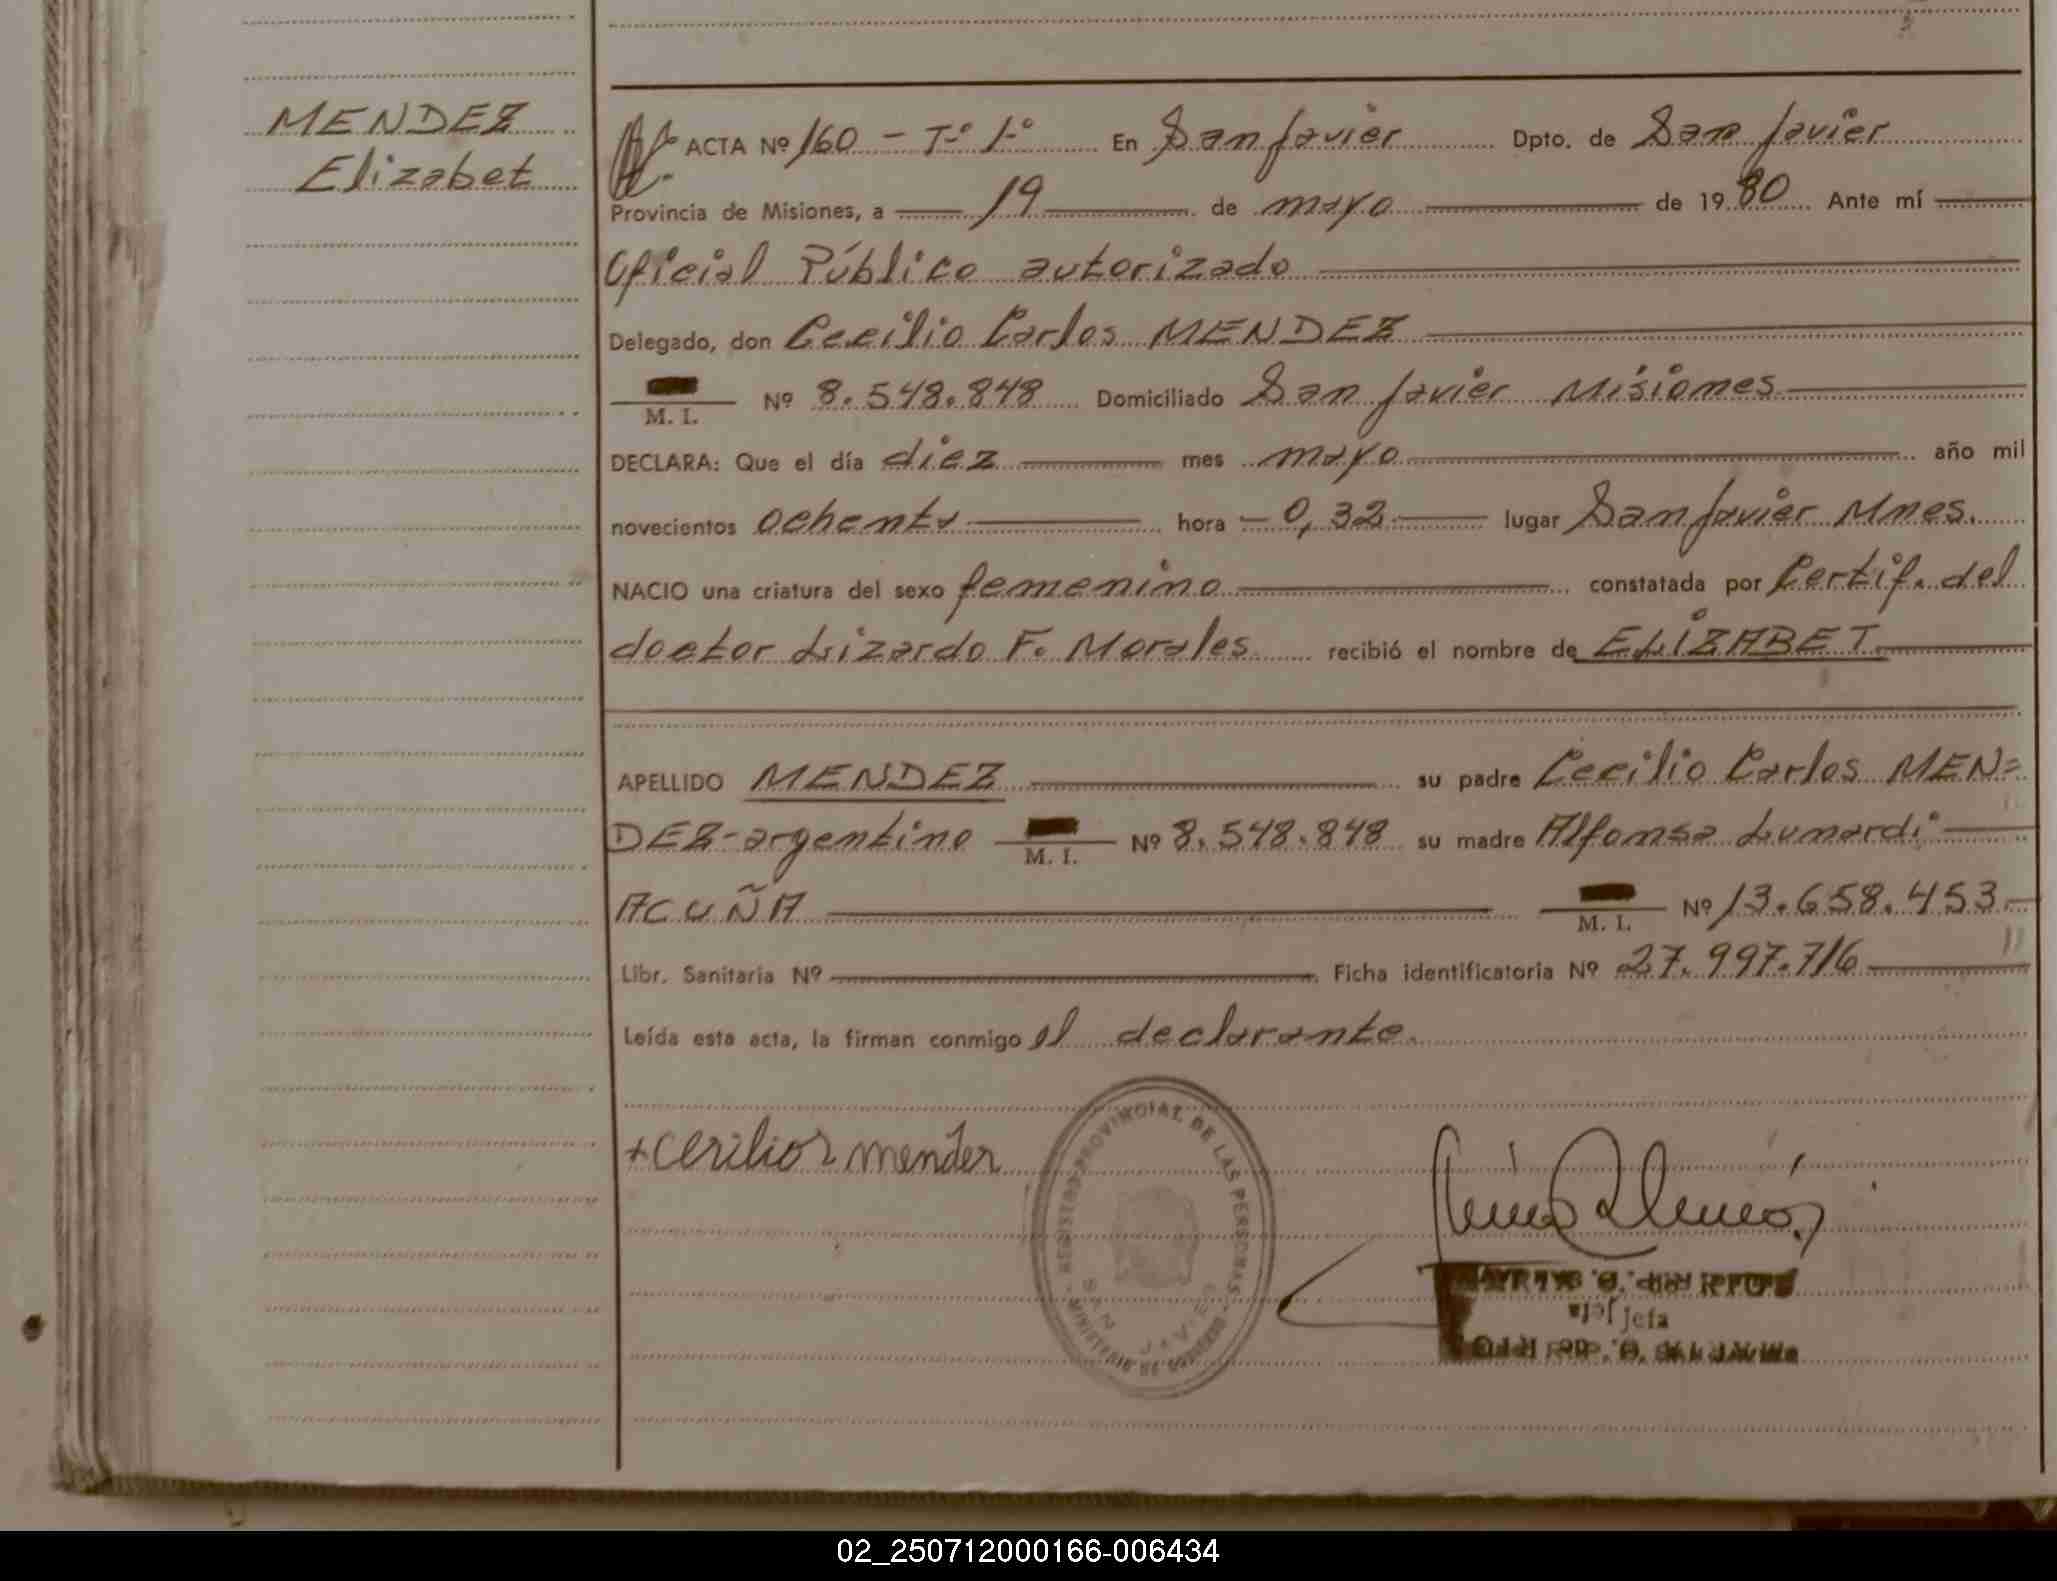 MENDEZ
Elizabet
ACTA Nº 160 - Tº 1º En San Javier Dpto. de San Javier
Provincia de Misiones, a 19 de mayo de 1980 Ante mí
Oficial Público autorizado
Delegado, don Cecilio Carlos MENDEZ
M. I. Nº 8.548.848 Domiciliado San Javier Misiones
DECLARA: Que el día diez mes mayo año mil
novecientos ochenta hora 0,32 lugar San Javier Mnes.
NACIO una criatura del sexo femenino constatada por Certif. del
doctor Lizardo F. Morales recibió el nombre de ELIZABET
APELLIDO MENDEZ su padre Cecilio Carlos MEN=
DEZ-argentino M. I. Nº 8.548.848 su madre Alfonsa Lunardi
ACUÑA M. I. Nº 13.658.453
Libr. Sanitaria Nº Ficha identificatoria Nº 27.997.716
Leída esta acta, la firman conmigo el declarante.
REGISTRO PROVINCIAL DE LAS PERSONAS
SAN JAVIER
MINISTERIO DE GOBIERNO
Jefa
02_250712000166-006434